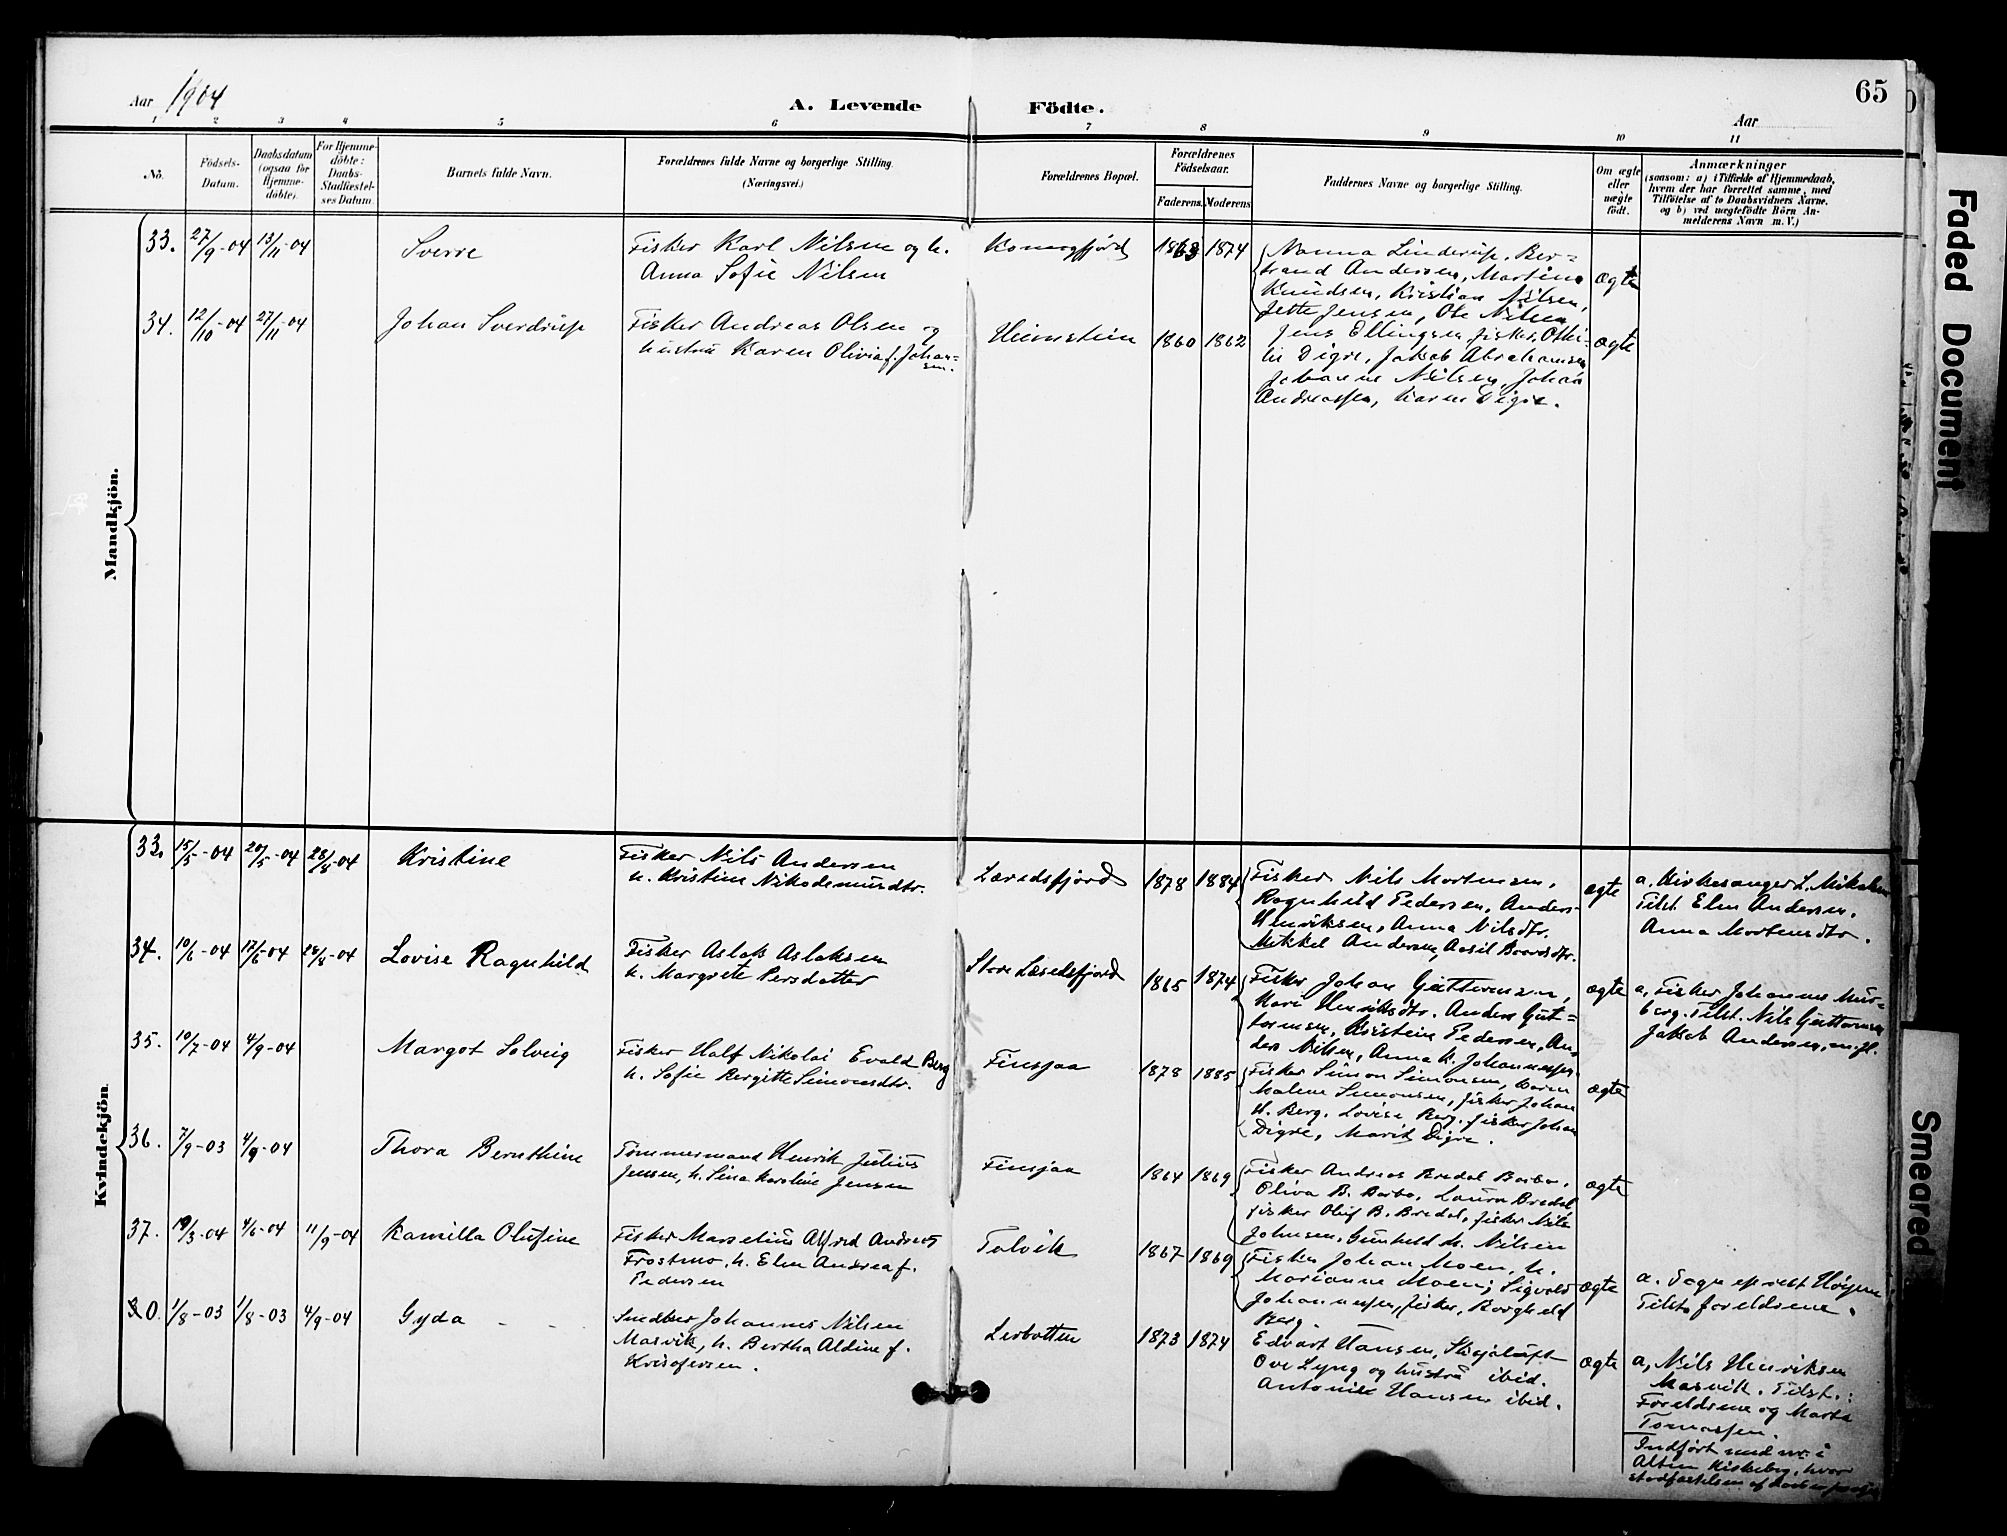 Aar 1904
A. Levende Födte.
Aar
65
1 2 3 4 5 6 7 8 9 10 11
No.
Födsels-
Datum.
Daabsdatum
(ogsaa for
Hjemme-
döbte).
For Hjemme-
döbte:
Daabs-
Stadfæstel-
ses Datum.
Barnets fulde Navn.
Forældrenes fulde Navne og borgerlige Stilling.
(Næringsvei.)
Forældrenes Bopæl.
Forældrenes
Födselsaar.
Faderens. Moderens.
Faddernes Navne og borgerlige Stilling.
Om ægte
eller
uægte
födt.
Anmærkninger
(saasom: a) i Tilfælde af Hjemmedaab,
hvem der har forrettet samme, med
Tilföielse af to Daabsvidners Navne.
og b) ved uægtefödte Börn An-
melderens Navn m. V.)
Mandkjön.
33. 27/9-04 13/11-04 Sverre
Fisker Karl Nilsen og h.
Anna Sofie Nilsen
Komagfjord 1863 1874
Nanna Linderup, Ber-
trand Andersen, Martine
Knudsen, Kristian Nilsen,
Jette Jensen, Ole Nilsen
ægte
34. 12/10-04 27/11-04 Johan Sverdrup
Fisker Andreas Olsen og
hustru Karen Olivia f. Johan-
sen.
1860 1862
Jens Ellingsen fisker, Otti-
lie Digre, Jakob Abrahamsen
Johanne Nilsen, Johan
Andreassen, Karen Digre.
ægte
Kvindekjön.
33. 15/5-04 20/5-04 28/8-04 Kristine
Fisker Nils Andersen
h. Kristine Nikodemusdtr.
Læredsfjord 1878 1884
Fisker Nils Mortensen,
Ragnhild Pedersen, Anders
Henriksen, Anna Nilsdtr.
Mikkel Andersen,
ægte
a. Kirkesanger L. Mikalsen
Tilst. Elen Andersen.
Anna Mortensdtr.
34. 10/6-04 12/6-04 28/8-04 Lovise Ragnhild
Fisker Aslak Aslaksen
h. Margrete Persdatter
Store Læredsfjord 1865 1874
Fisker Johan Guttormsen,
Kari Henriksdtr. Anders Gut-
tormsen, Kristine Pedersen, An-
ders Nilsen, Anna K. Johannessen
ægte
a, Fisker Johannes Mur-
berg. Tilst. Nils Guttormsen
Jakob Andersen, m. fl.
35. 10/7-04 4/9-04 Margot Solveig
Fisker Half Nikolai Evald Berg
h. Sofie Bergitte Simonsdtr.
Finsjaa 1878 1885
Fisker Simon Simonsen, Karen
Malene Simonsen, fisker Johan
H. Berg, Lovise Berg, fisker Johan
Digre, Marit Digre.
ægte
36. 7/9-03 4/9-04 Thora Bernthine
Tømmermand Henrik Julius
Jensen, h. Lina Karoline Jensen
Finsjaa 1864 1869
Fisker Andreas Bredal Barbo,
Oliva B. Barbo, Laura Bredal,
fisker Oluf B. Bredal, fisker Nils
Johnsen, Gunhild M. Nilsen
ægte
37. 19/3-04 4/6-04 11/9-04 Kamilla Olufine
Fisker Marselius Alfred Andreas
Frostmo, h. Elen Andrea f.
Pedersen
Talvik 1867 1869
Fisker Johan Moen, h.
Marianne Moen; Sigvald
Johannessen, fisker, Borghild
Berg.
ægte
a. Sogn. eprest Høyem
Tilst. foreldrene.
30. 1/8-03 1/8-03 4/9-04 Gyda - -
Småbr Johannes Nilsen
Masvik, h. Bertha Aldine f.
Kristofersen.
Lerbotten 1873 1874
Edvart Hansen, Skojaluft
Ove Lyng og hustru ibid.
Antonise Hansen ibid.
ægte
a, Nils Henriksen
Masvik. Tilst.:
Foreldrene og Marta
Tomassen.
Indført med nr. i
Alten Kirkebog, hvor
stadfæstelsen af daaben
Faded Document
Smeared